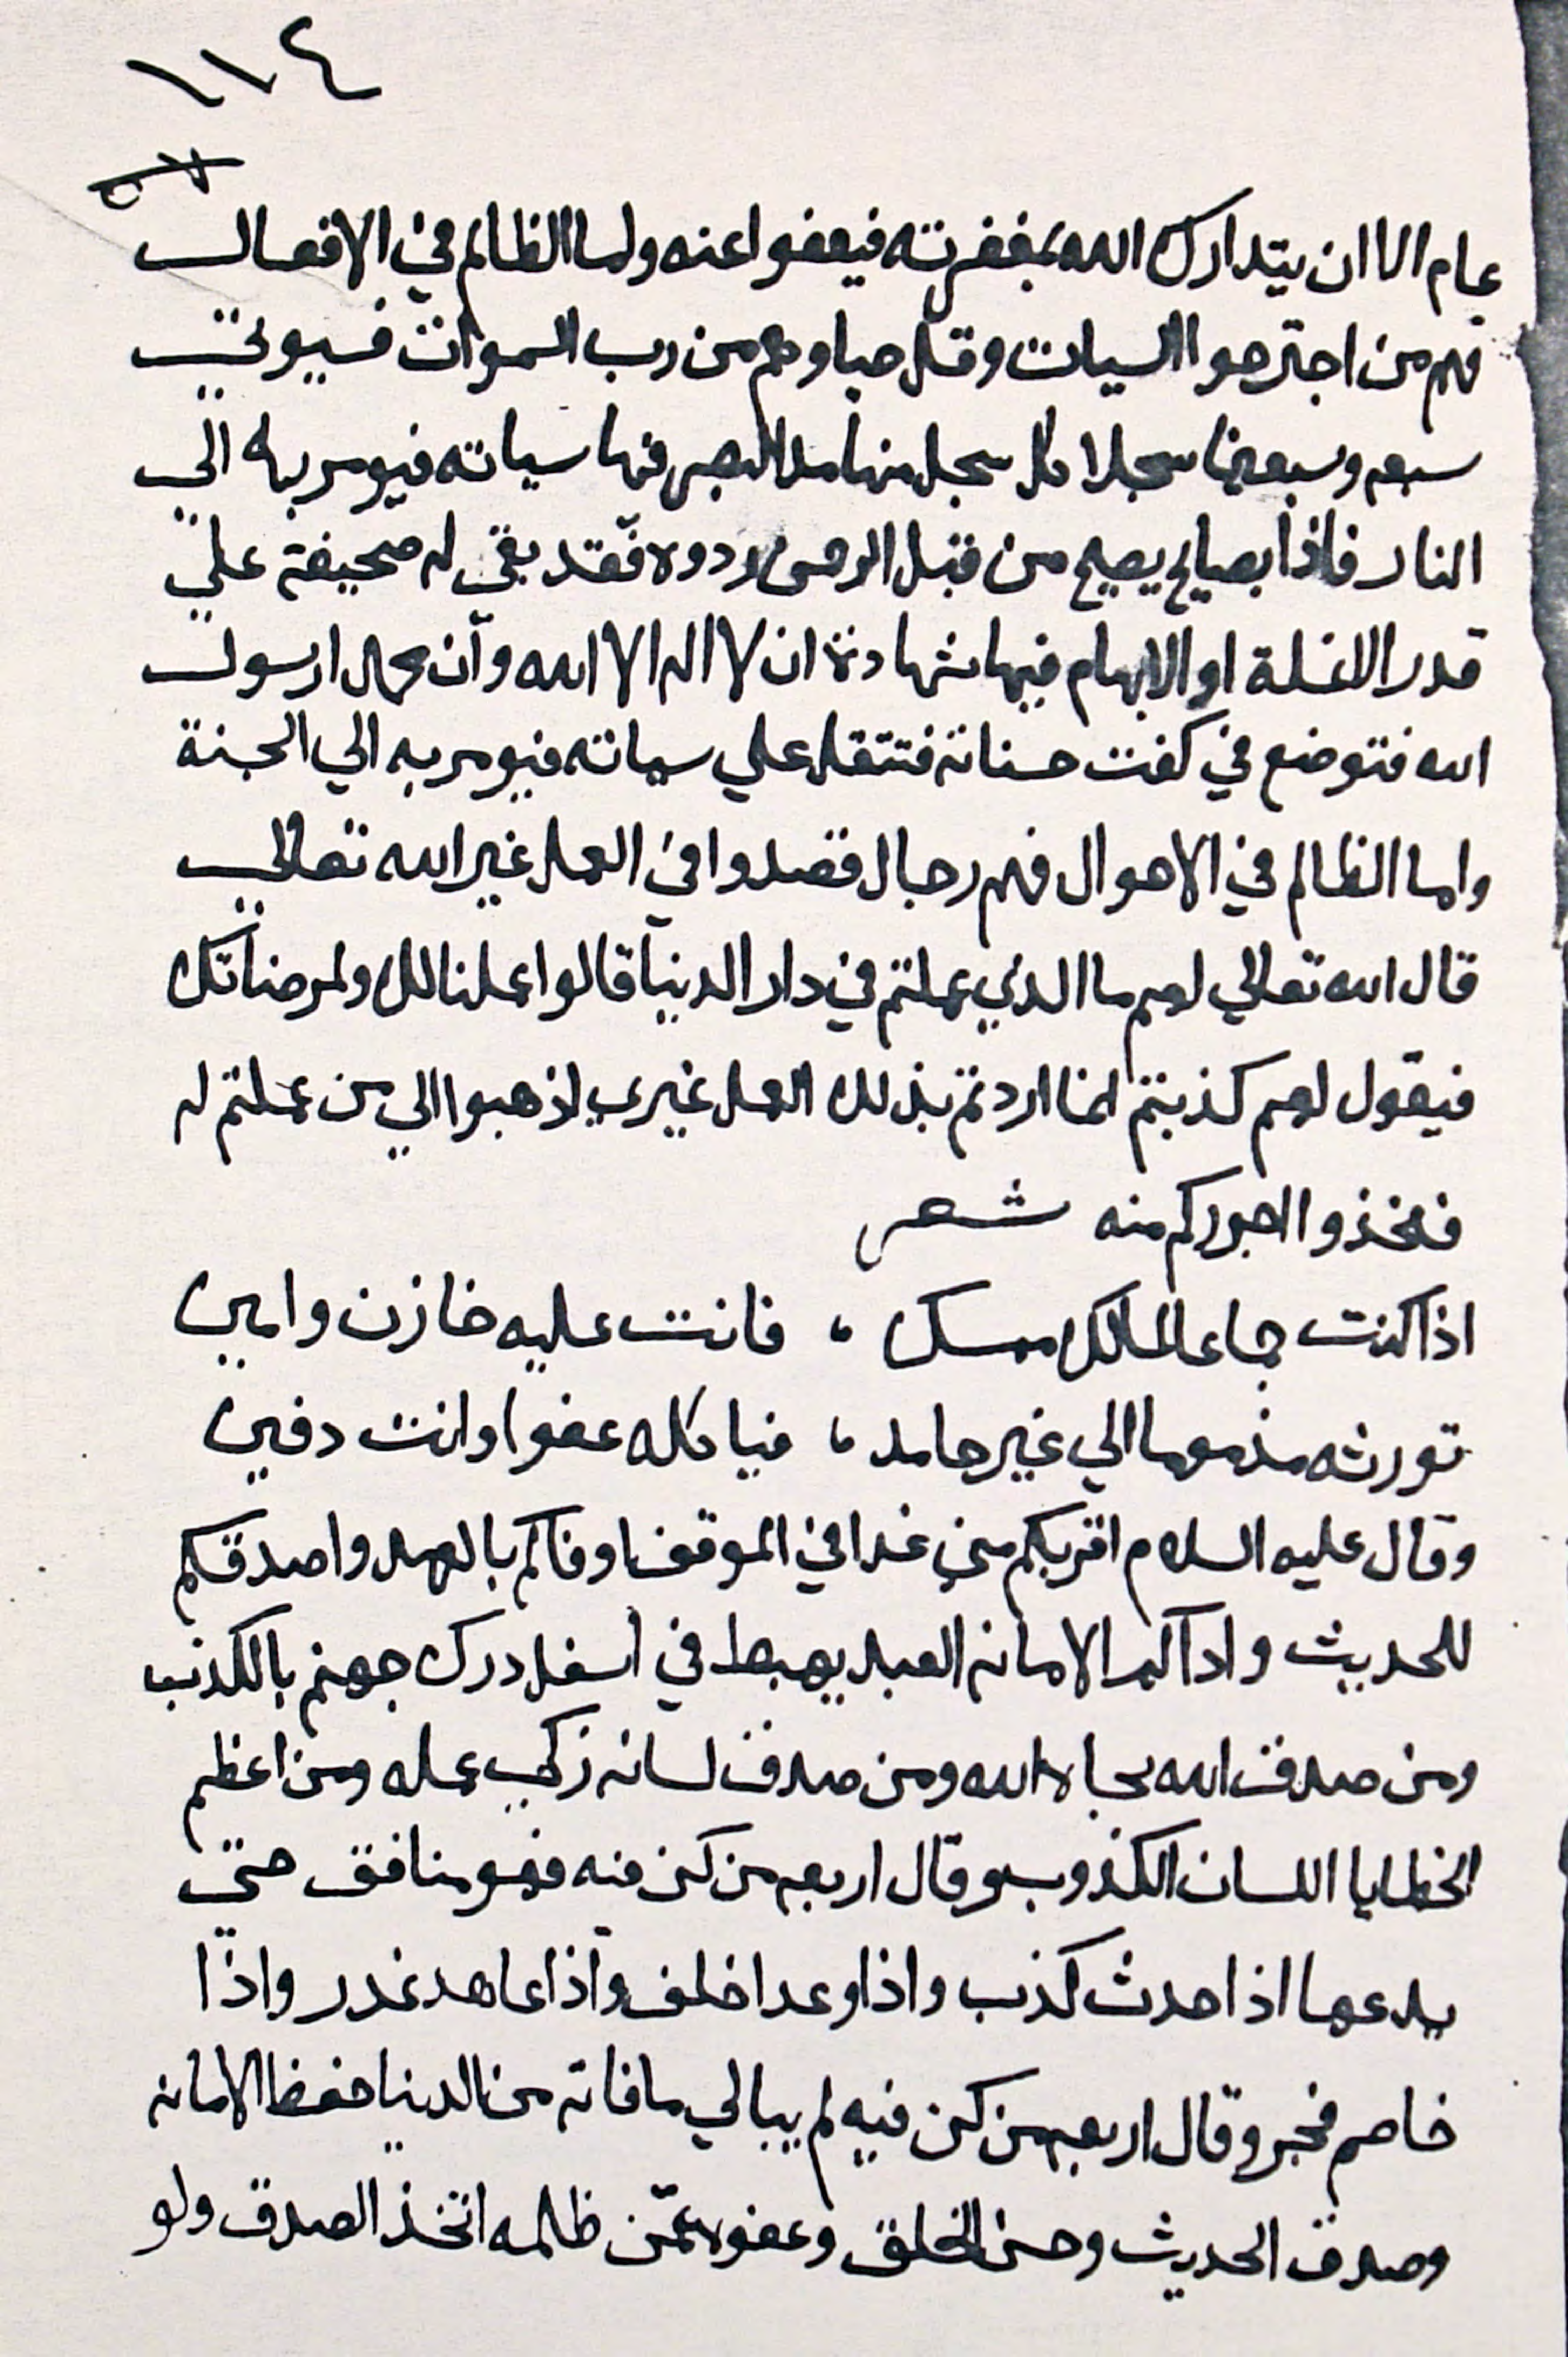 ١١٤
عام الا ان يتدارك الله بمغفرته فيعفوا عنه واما الظالم في الافعال
فهم من اجترحوا السيات وقل حياوهم من رب السموات فيوتي
سبعه وسبعين سجلا كل سجل منها مد البصر فيها سياته فيومر به الي
النار فاذا بصياح يصيح من قبل الرحمن ردوه فقد بقي له صحيفة علي
قدر الانملة او الابهام فيها شهادة ان لا اله الا الله وان محمدا رسول
الله فتوضع في كفت حسناته فتثقل علي سياته فيومر به الي الجنة
واما الظالم في الاحوال فهم رجال قصدوا في العمل غير الله تعالي
قال الله تعالي لهم ما الذي عملتم في دار الدنيا قالوا عملنا لك ولمرضاتك
فيقول لهم كذبتم انما اردتم بذلك العمل غيري اذهبوا الي من عملتم له
فخذوا اجوركم منه شعر
اذا كنت جماعا لمالك ممسك ، فانت عليه خازن وامين
تورثه مذموما الي غير حامد ، فياكله عفوا وانت دفين
وقال عليه السلام اقربكم مني غدا في الموقف اوفاكم بالعهد واصدقكم
للحديث واداكم الامانه العبد يهبط في اسفل درك جهنم بالكذب
ومن صدق الله نجاه الله ومن صدق لسانه زكي عمله ومن اعظم
الخطايا اللسان الكذوب وقال اربعه من كن فيه فهو منافق حتي
يدعها اذا حدث كذب واذا وعد اخلف واذا عاهد غدر واذا
خاصم فجر وقال اربعه من كن فيه لم يبالي ما فاته من الدنيا حفظ الامانه
وصدق الحديث وحسن الخلق وعفوه عمن ظلمه اتخذ الصدق ولو